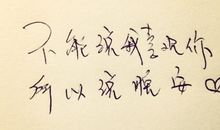 不能说我喜欢你
所以说晚安♡